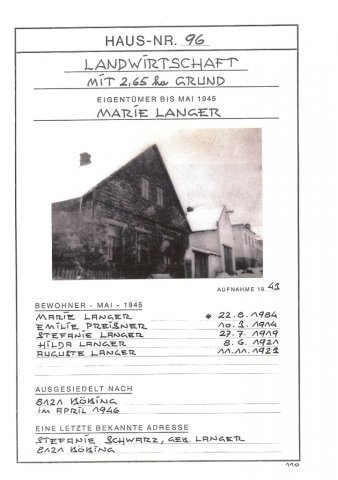 HAUS-NR. 96
LANDWIRTSCHAFT
MIT 2,65 ha GRUND
EIGENTÜMER BIS MAI 1945
MARIE LANGER
AUFNAHME 1943
BEWOHNER - MAI - 1945
MARIE LANGER * 22.8.1984
EMILIE PREISNER 10.3.1914
STEFANIE LANGER 27.7.1919
HILDA LANGER 8.6.1921
AUGUSTE LANGER 11.11.1923
AUSGESIEDELT NACH
8121 BÖBING
IM APRIL 1946
EINE LETZTE BEKANNTE ADRESSE
STEFANIE SCHWARZ, GEB. LANGER
8121 BÖBING
110